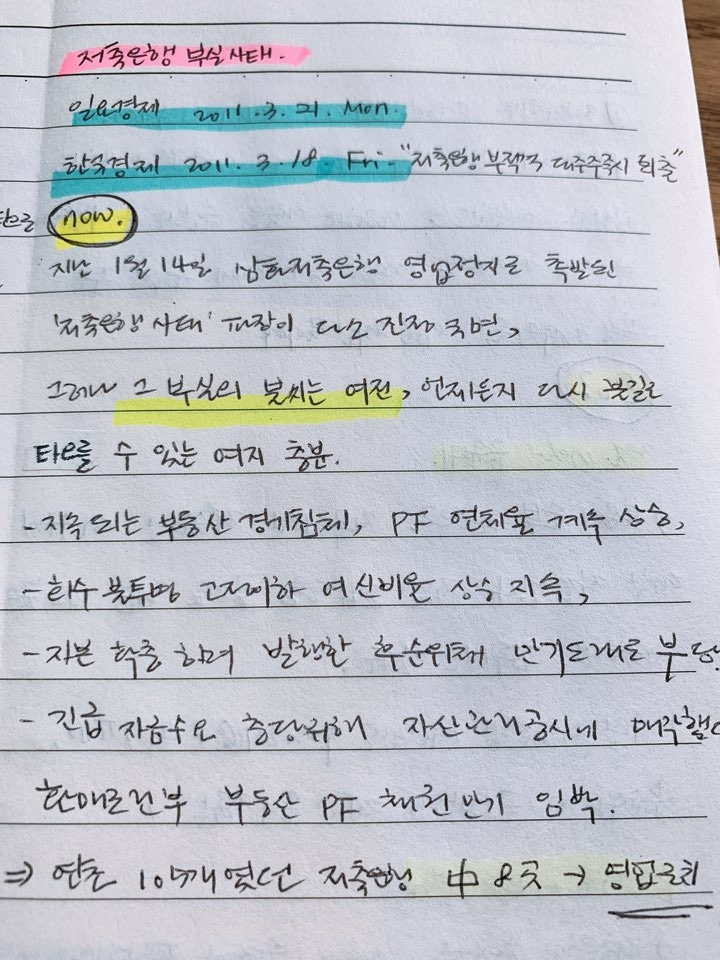 저축은행 부실사태.
일요경제 2011. 3. 21. Mon.
한국경제 2011. 3. 18. Fri. "저축은행 부적격 대주주 즉시 퇴출"
now.
지난 1월 14일 삼화저축은행 영업정지로 촉발된
'저축은행 사태' 파장이 다소 진정 국면,
그러나 그 부실의 불씨는 여전, 언제든지 다시 불길로
타오를 수 있는 여지 충분.
- 지속되는 부동산 경기침체, PF 연체율 계속 상승,
- 회수 불투명 고정이하 여신비율 상승 지속,
- 자본 확충 하려 발행한 후순위채 만기도래로 부담.
- 긴급 자금수요 충당위해 자산관리공사에 매각했
환매조건부 부동산 PF 채권 만기 임박.
⇒ 연초 104개였던 저축은행 中 8곳 → 영업